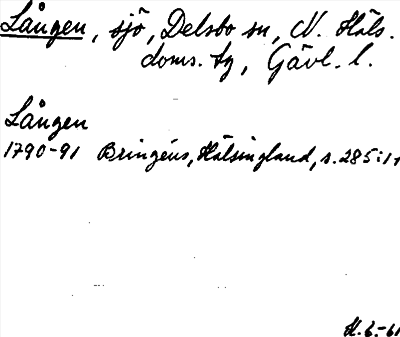 Lången, sjö, Delsbo sn, N. Häls.
doms. tg, Gävl. l.
Lången
1790-91 Bringéus, Hälsingland, s. 285:1
H. 6.-61